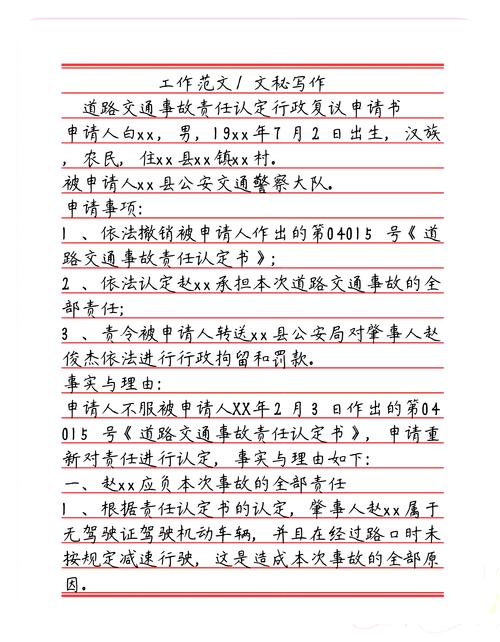 工作范文/ 文秘写作
道路交通事故责任认定行政复议申请书
申请人白xx, 男, 19xx年7月2日出生, 汉族
, 农民, 住xx县xx镇xx村。
被申请人xx县公安交通警察大队。
申请事项:
1 、依法撤销被申请人作出的第04015 号《 道
路交通事故责任认定书》;
2 、依法认定赵xx承担本次道路交通事故的全
部责任;
3 、责令被申请人转送xx县公安局对肇事人赵
俊杰依法进行行政拘留和罚款。
事实与理由:
申请人不服被申请人XX年2月3 日作出的第04
015 号《 道路交通事故责任认定书》, 申请重
新对责任进行认定, 事实与理由如下:
一、赵xx应负本次事故的全部责任
1 、根据责任认定书的认定, 肇事人赵xx属于
无驾驶证驾驶机动车辆, 并且在经过路口时未
按规定减速行驶, 这是造成本次事故的全部原
因。